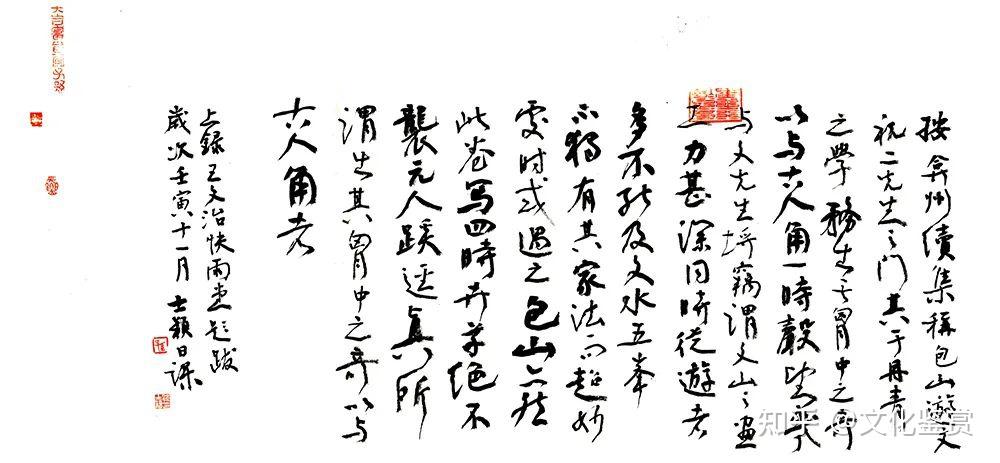 按弇州續集稱包山遊文
祝二先生之門其于丹青
之學務生其胸中之奇
以与古人角一時聲望幾
与文先生埒竊謂文山之畫
工力甚深同時從遊者
多不能及文水五峯
亦獨有其家法而超妙
處时或過之包山亦然
此卷写四時卉草絕不
襲元人蹊逕真所
謂生其胸中之奇以与
古人角者
上録王文治快雨堂題跋
歲次壬寅十一月 日課
知乎 @文化鉴赏